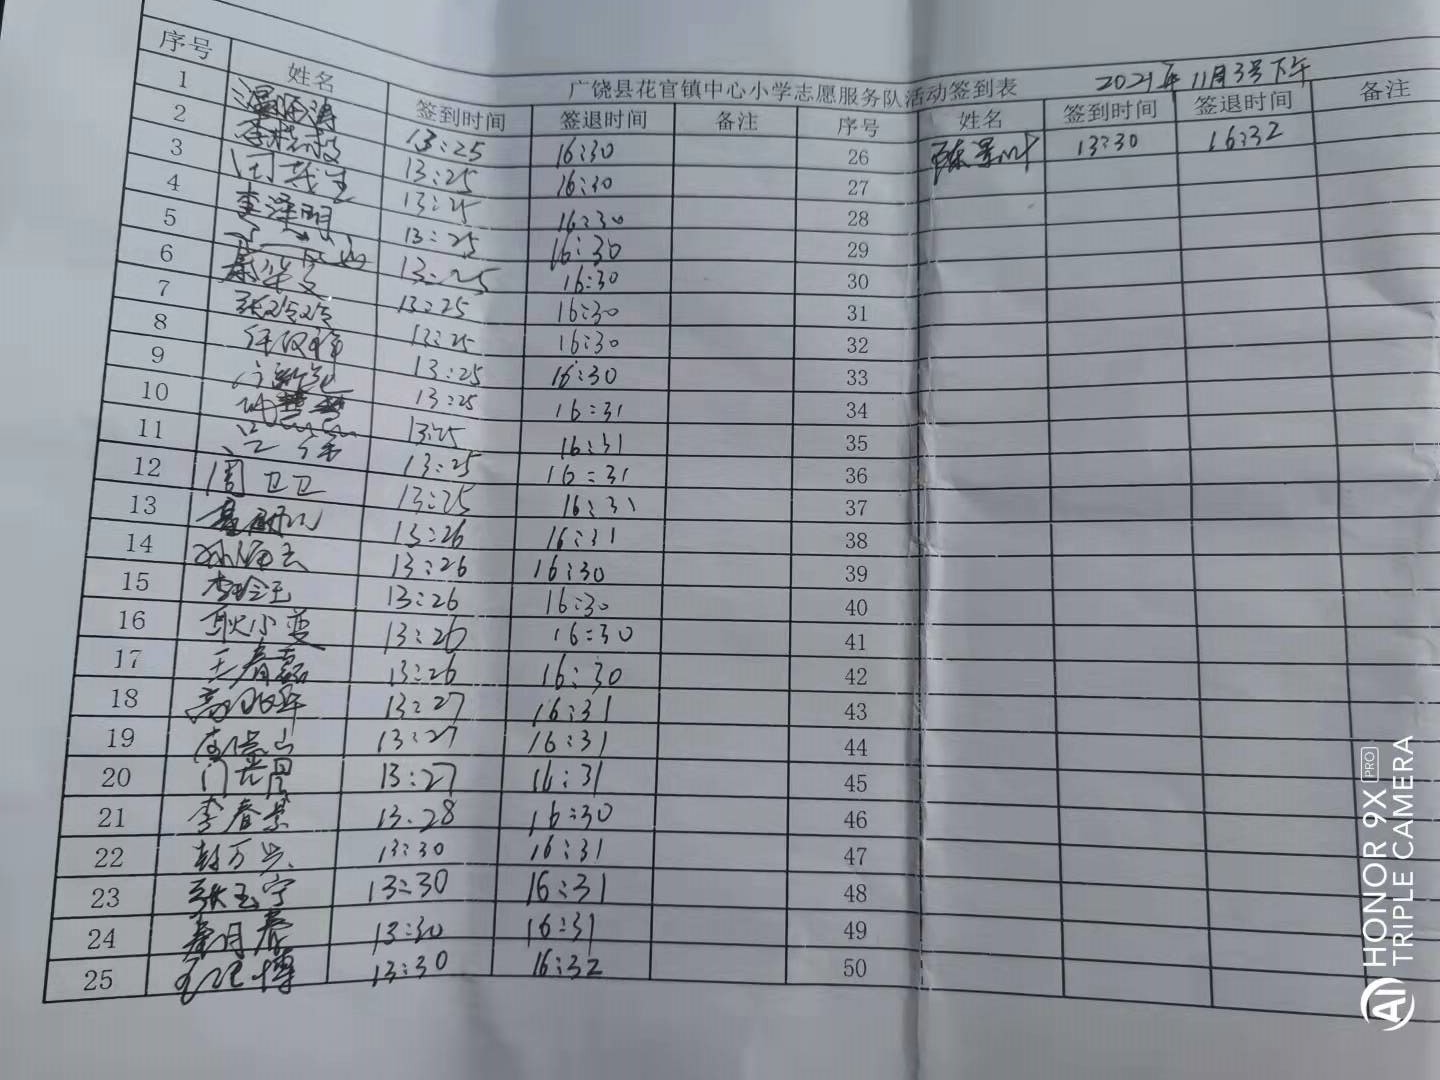 广饶县花官镇中心小学志愿服务队活动签到表 2021年11月3号下午
序号 姓名 签到时间 签退时间 备注 序号 姓名 签到时间 签退时间 备注
1 13:25 16:30 26 13:30 16:32
2 13:25 16:30 27
3 13:25 16:30 28
4 李泽明 13:25 16:30 29
5 13:25 16:30 30
6 13:25 16:30 31
7 张玲玲 13:25 16:30 32
8 13:25 16:30 33
9 13:25 16:31 34
10 13:25 16:31 35
11 13:25 16:31 36
12 周卫卫 13:25 16:31 37
13 13:26 16:31 38
14 13:26 16:30 39
15 13:26 16:30 40
16 耿小雯 13:26 16:30 41
17 王春磊 13:26 16:30 42
18 13:27 16:31 43
19 13:27 16:31 44
20 13:27 16:31 45
21 李春景 13:28 16:30 46
22 13:30 16:31 47
23 张玉宁 13:30 16:31 48
24 秦月春 13:30 16:31 49
25 13:30 16:32 50
HONOR 9X PRO
TRIPLE CAMERA
AI